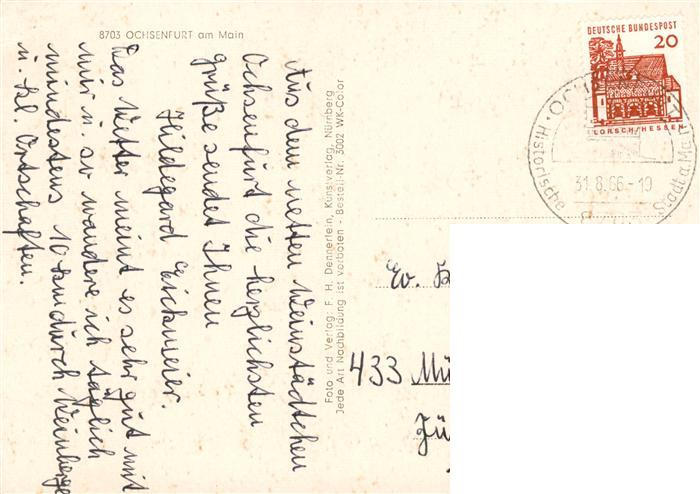 8703 OCHSENFURT am Main
Aus dem netten Weinstädtchen
Ochsenfurt die herzlichsten
Grüße sendet Ihnen
Hildegard
Das Wetter meint es sehr gut mit
mir u. so wandere ich täglich
mindestens 10 km durch Weinberge
u. kl. Ortschaften.
Foto und Verlag: F. H. Dennerlein, Kunstverlag, Nürnberg
Jede Art Nachbildung ist verboten - Bestell-Nr. 3002 WK-Color
DEUTSCHE BUNDESPOST
20
LORSCH/HESSEN
Historische
Stadt a. Ma
31.8.66-19
Ev.
433 Mü